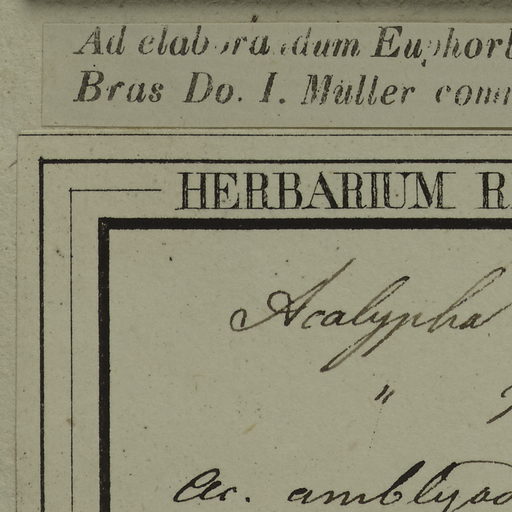 Ad elaborandum Euphorb
Bras Do. I. Müller comm
HERBARIUM R
Acalypha
"
Ac. amblyod